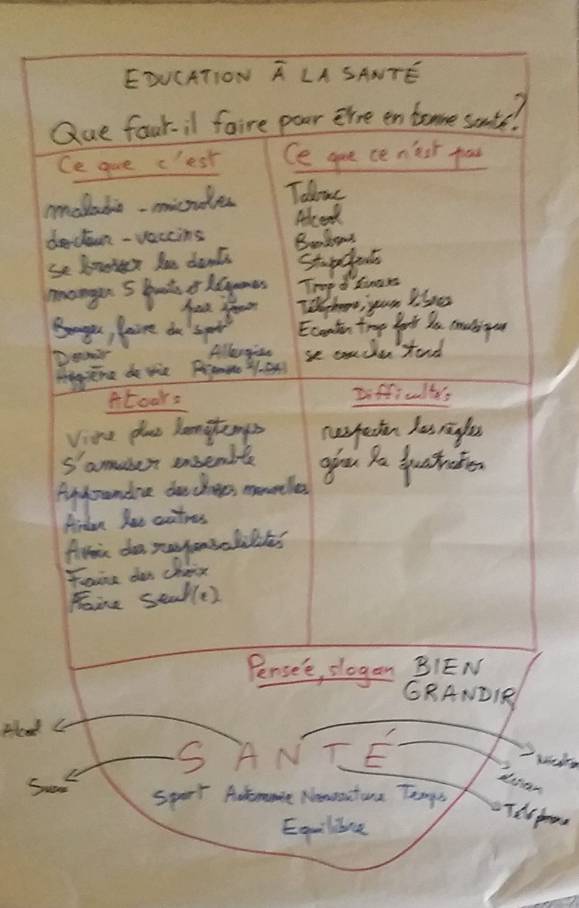 EDUCATION À LA SANTÉ
Que faut-il faire pour être en bonne santé?
Ce que c'est
maladie - microbes
docteur - vaccins
se brosser les dents
manger 5 fruits et légumes
par jour
Bouger, faire du sport
Dormir Allergies
Hygiène de vie
Ce que ce n'est pas
Tabac
Alcool
Bonbons
Stupéfiants
Trop d'écrans
Téléphone, jeux vidéos
Ecouter trop fort la musique
se coucher tard
Atouts
Vivre plus longtemps
S'amuser ensemble
Apprendre des choses nouvelles
Aider les autres
Avoir des responsabilités
Faire des choix
Faire seul(e)
Difficultés
respecter les règles
gérer la frustration
Pensée, slogan BIEN
GRANDIR
Alcool
SANTÉ
Sucre
Ecran
Téléphone
Sport Autonomie Nourriture Temps
Equilibre